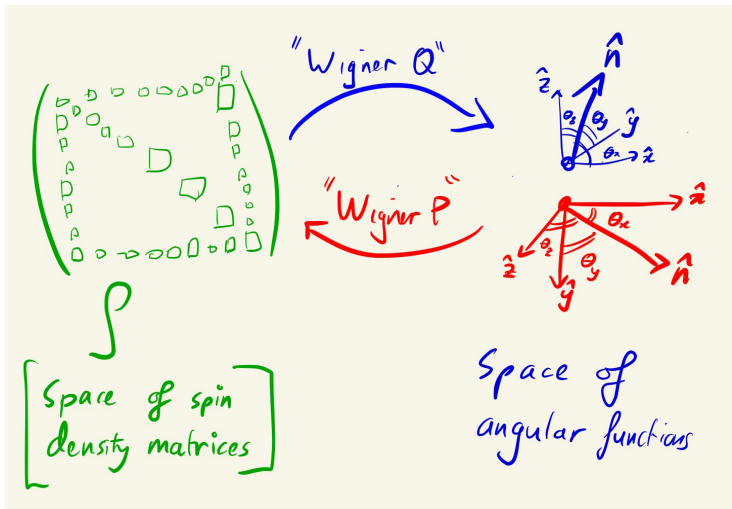 "Wigner Q"
n̂
ẑ
θz
θy
ŷ
θx
x̂
"Wigner P"
x̂
θx
θz
θy
ẑ
ŷ
n̂
ρ
Space of spin
density matrices
Space of
angular functions